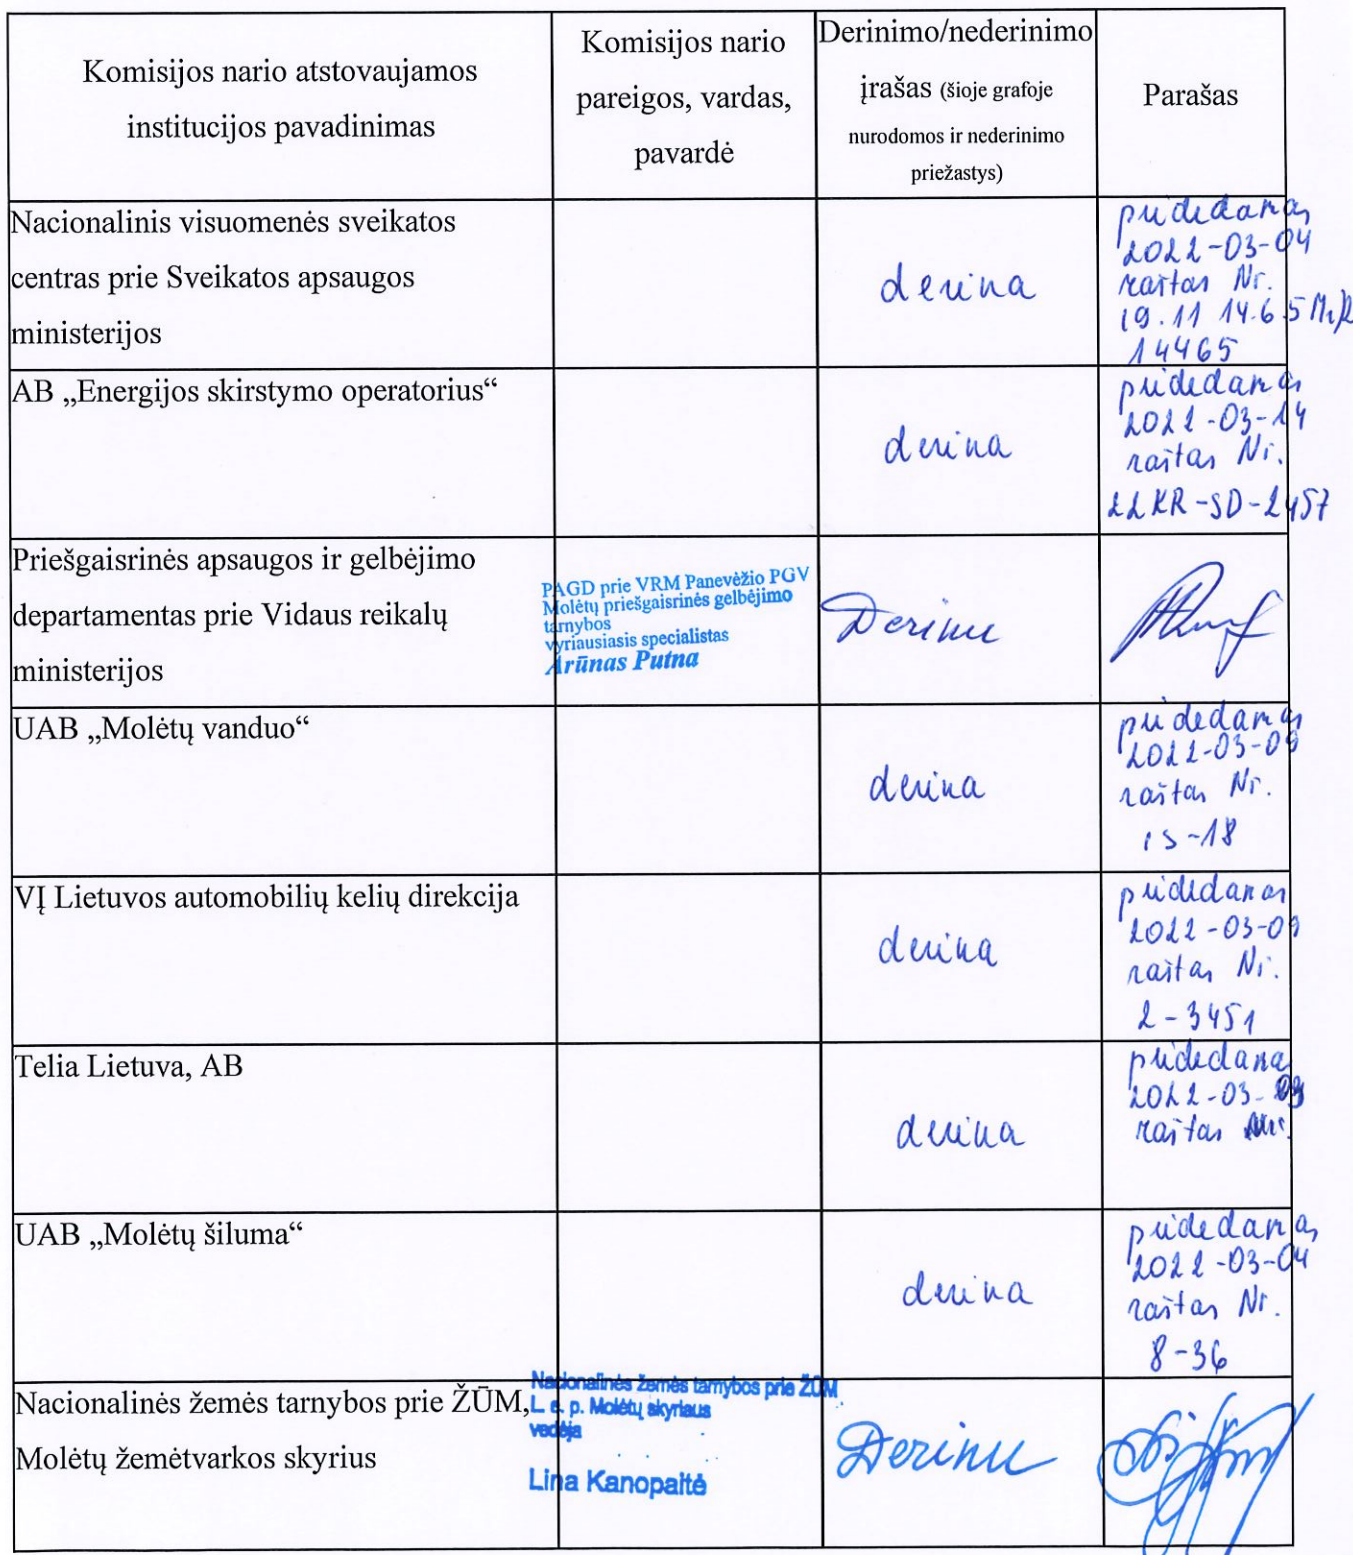 Komisijos nario atstovaujamos
institucijos pavadinimas
Komisijos nario
pareigos, vardas,
pavardė
Derinimo/nederinimo
įrašas (šioje grafoje
nurodomos ir nederinimo
priežastys)
Parašas
Nacionalinis visuomenės sveikatos
centras prie Sveikatos apsaugos
ministerijos
derina
pridedamas
2022-03-04
raštas Nr.
14465
AB „Energijos skirstymo operatorius“
derina
pridedamas
2022-03-14
raštas Nr.
22KR-SD-2457
Priešgaisrinės apsaugos ir gelbėjimo
departamentas prie Vidaus reikalų
ministerijos
PAGD prie VRM Panevėžio PGV
Molėtų priešgaisrinės gelbėjimo
tarnybos
vyriausiasis specialistas
Arūnas Putna
Derinu
UAB „Molėtų vanduo“
derina
pridedamas
2022-03-09
raštas Nr.
IS-18
VĮ Lietuvos automobilių kelių direkcija
derina
pridedamas
2022-03-09
raštas Nr.
2-3451
Telia Lietuva, AB
derina
pridedamas
raštas
UAB „Molėtų šiluma“
derina
pridedamas
2022-03-04
raštas Nr.
8-36
Nacionalinės žemės tarnybos prie ŽŪM,
Molėtų žemėtvarkos skyrius
Nacionalinės žemės tarnybos prie ŽŪM
L. e. p. Molėtų skyriaus
vedėja
Lina Kanopaitė
Derinu